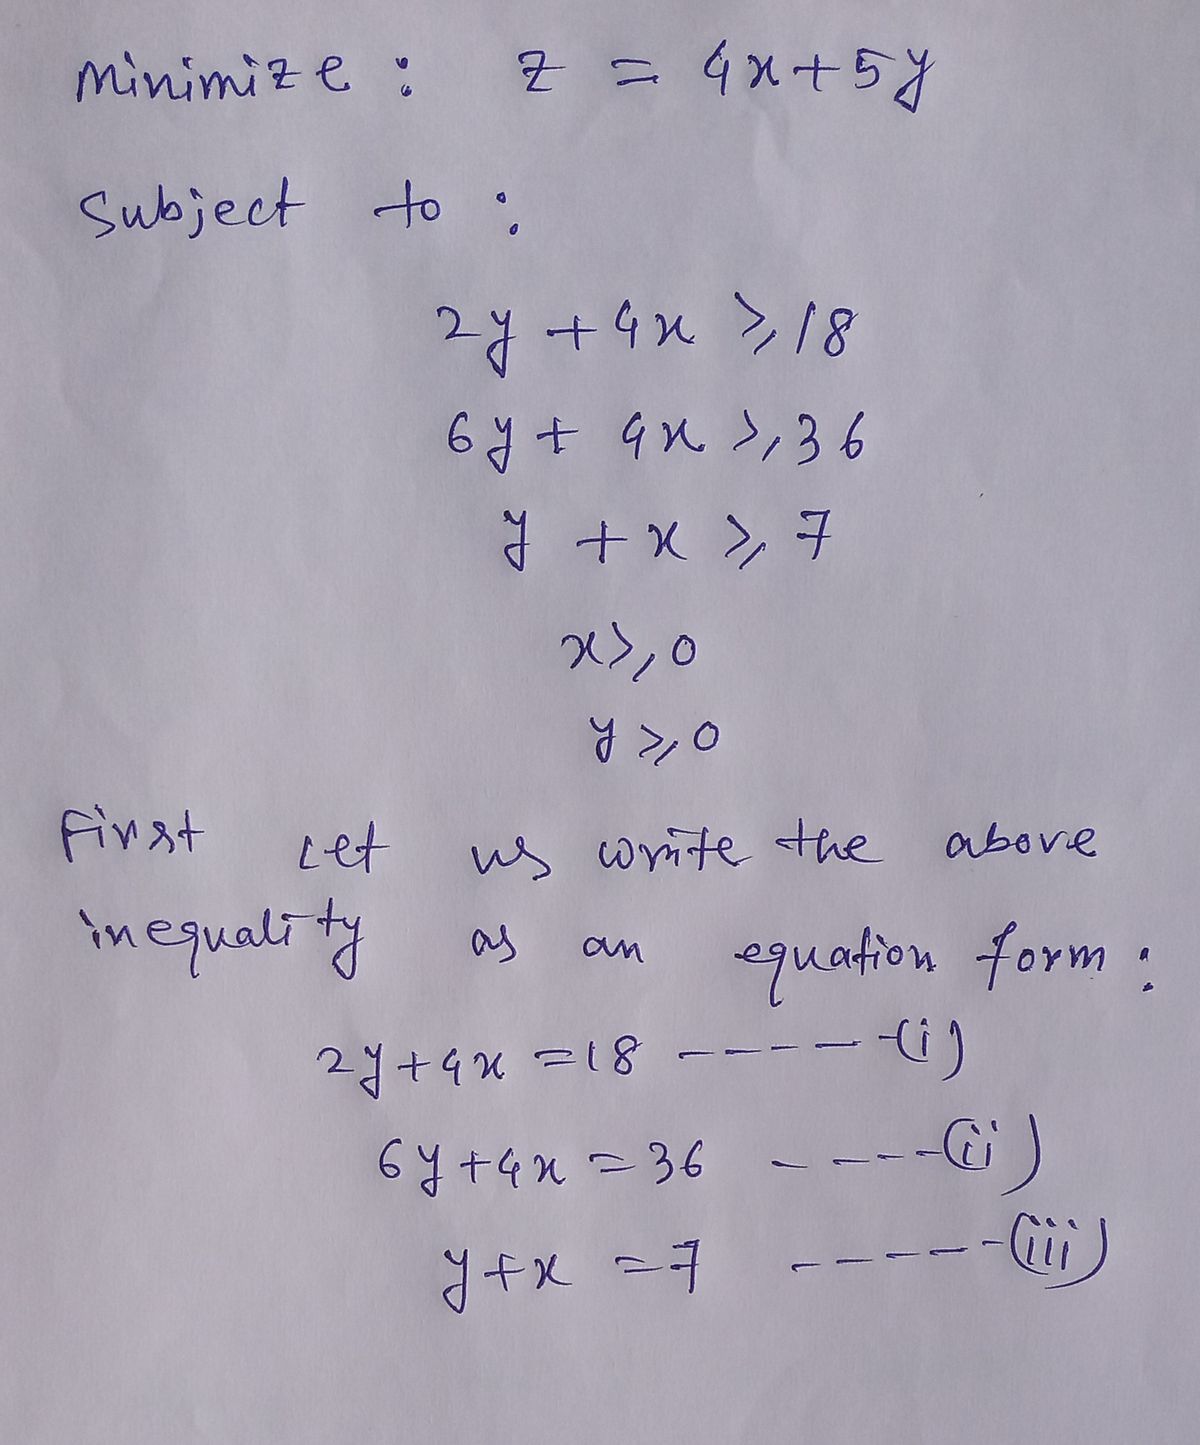 Minimize : z = 4x+5y
Subject to :
2y + 4x ≥ 18
6y + 4x ≥ 36
y + x ≥ 7
x ≥ 0
y ≥ 0
First Let us write the above
inequality as an equation form :
2y+4x =18 -----(i)
6y+4x =36 -----(ii)
y+x =7 -----(iii)